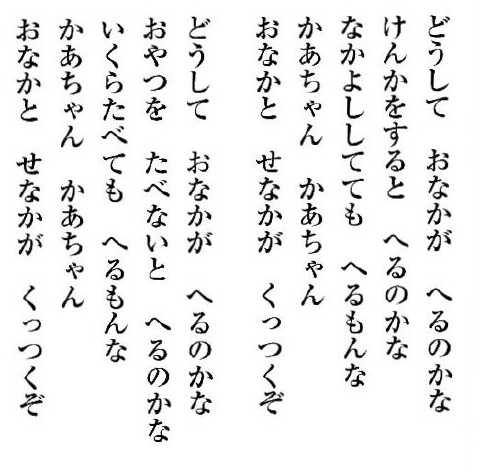 どうして　おなかが　へるのかな
けんかをすると　へるのかな
なかよししてても　へるもんな
かあちゃん　かあちゃん
おなかと　せなかが　くっつくぞ
どうして　おなかが　へるのかな
おやつを　たべないと　へるのかな
いくらたべても　へるもんな
かあちゃん　かあちゃん
おなかと　せなかが　くっつくぞ